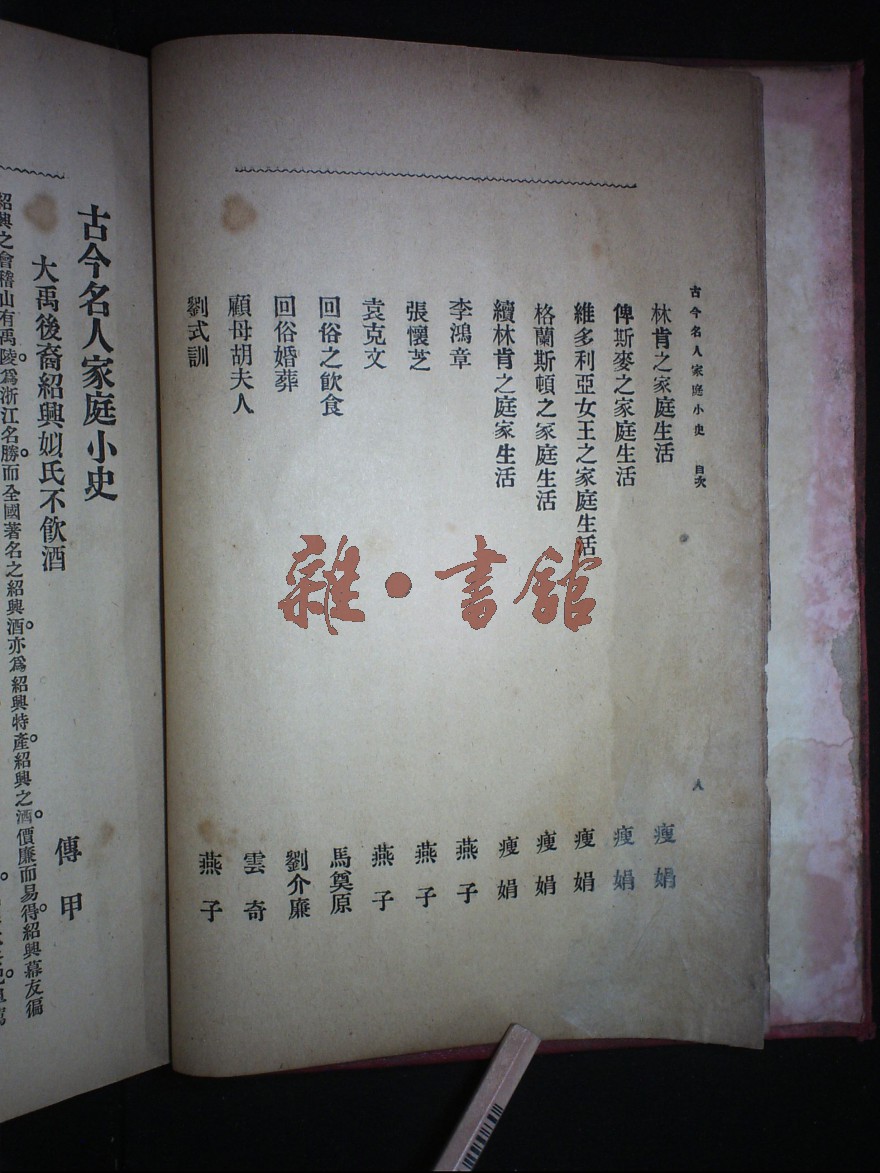 古今名人家庭小史 目次 八
林肯之家庭生活 瘦娟
俾斯麥之家庭生活 瘦娟
維多利亞女王之家庭生活 瘦娟
格蘭斯頓之家庭生活 瘦娟
續林肯之庭家生活 瘦娟
李鴻章 燕子
張懷芝 燕子
袁克文 燕子
回俗之飲食 馬奠原
回俗婚葬 劉介廉
顧母胡夫人 雲奇
劉式訓 燕子
雜·書館
古今名人家庭小史
大禹後裔紹興姒氏不飲酒 傳甲
紹興之會稽山有禹陵。爲浙江名勝。而全國著名之紹興酒。亦爲紹興特產。紹興之酒。價廉而易得。紹興幕友徧